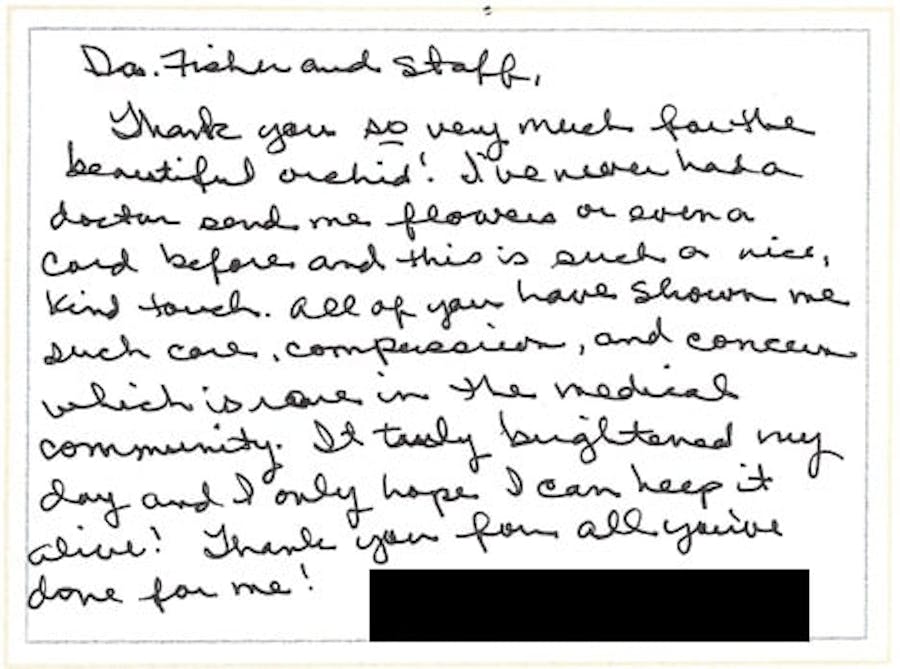 Drs. Fisher and Staff,
Thank you so very much for the
beautiful orchid! I've never had a
doctor send me flowers or even a
card before and this is such a nice,
kind touch. All of you have shown me
such care, compassion, and concern
which is rare in the medical
community. It truly brightened my
day and I only hope I can keep it
alive! Thank you for all you've
done for me!